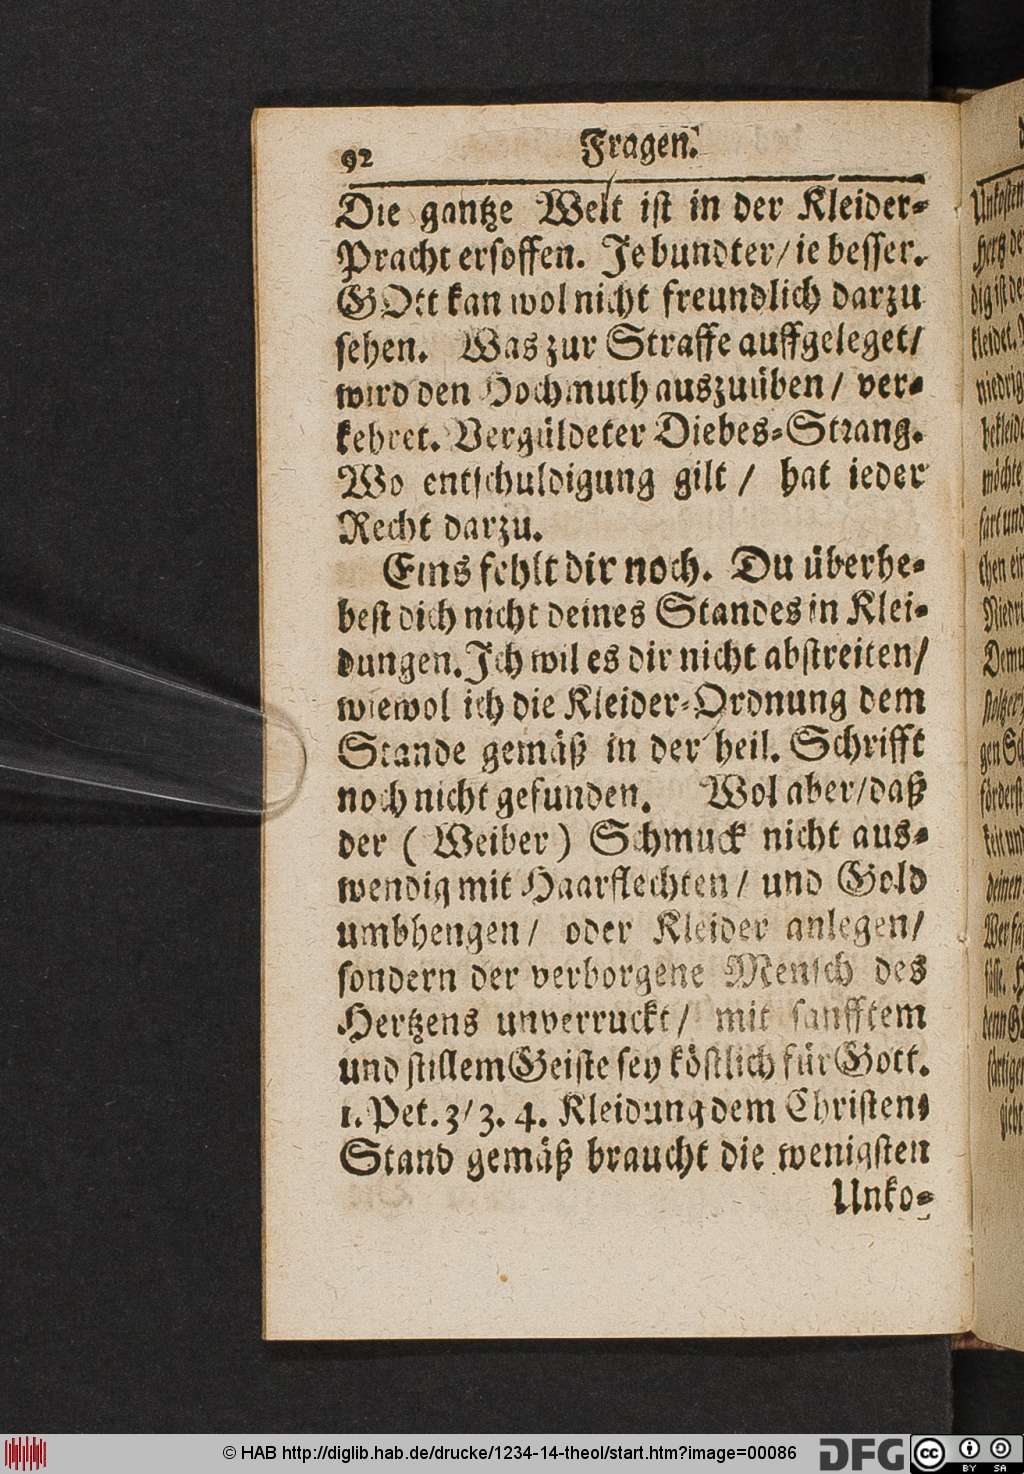 92 Fragen.
Die gantze Welt ist in der Kleider-
Pracht ersoffen. Je bundter/ ie besser.
GOtt kan wol nicht freundlich darzu
sehen. Was zur Straffe auffgeleget/
wird den Hochmuth auszuüben/ ver-
kehret. Vergüldeter Diebes-Strang.
Wo entschuldigung gilt / hat ieder
Recht darzu.
Eins fehlt dir noch. Du überhe-
best dich nicht deines Standes in Klei-
dungen. Ich wil es dir nicht abstreiten/
wiewol ich die Kleider-Ordnung dem
Stande gemäß in der heil. Schrifft
noch nicht gefunden. Wol aber/daß
der ( Weiber ) Schmuck nicht aus-
wendig mit Haarflechten/ und Gold
umbhengen/ oder Kleider anlegen/
sondern der verborgene Mensch des
Hertzens unverruckt/ mit sanfftem
und stillem Geiste sey köstlich für Gott.
1. Pet. 3/ 3. 4. Kleidung dem Christen-
Stand gemäß braucht die wenigsten
Unko-
© HAB http://diglib.hab.de/drucke/1234-14-theol/start.htm?image=00086
DFG
cc BY SA